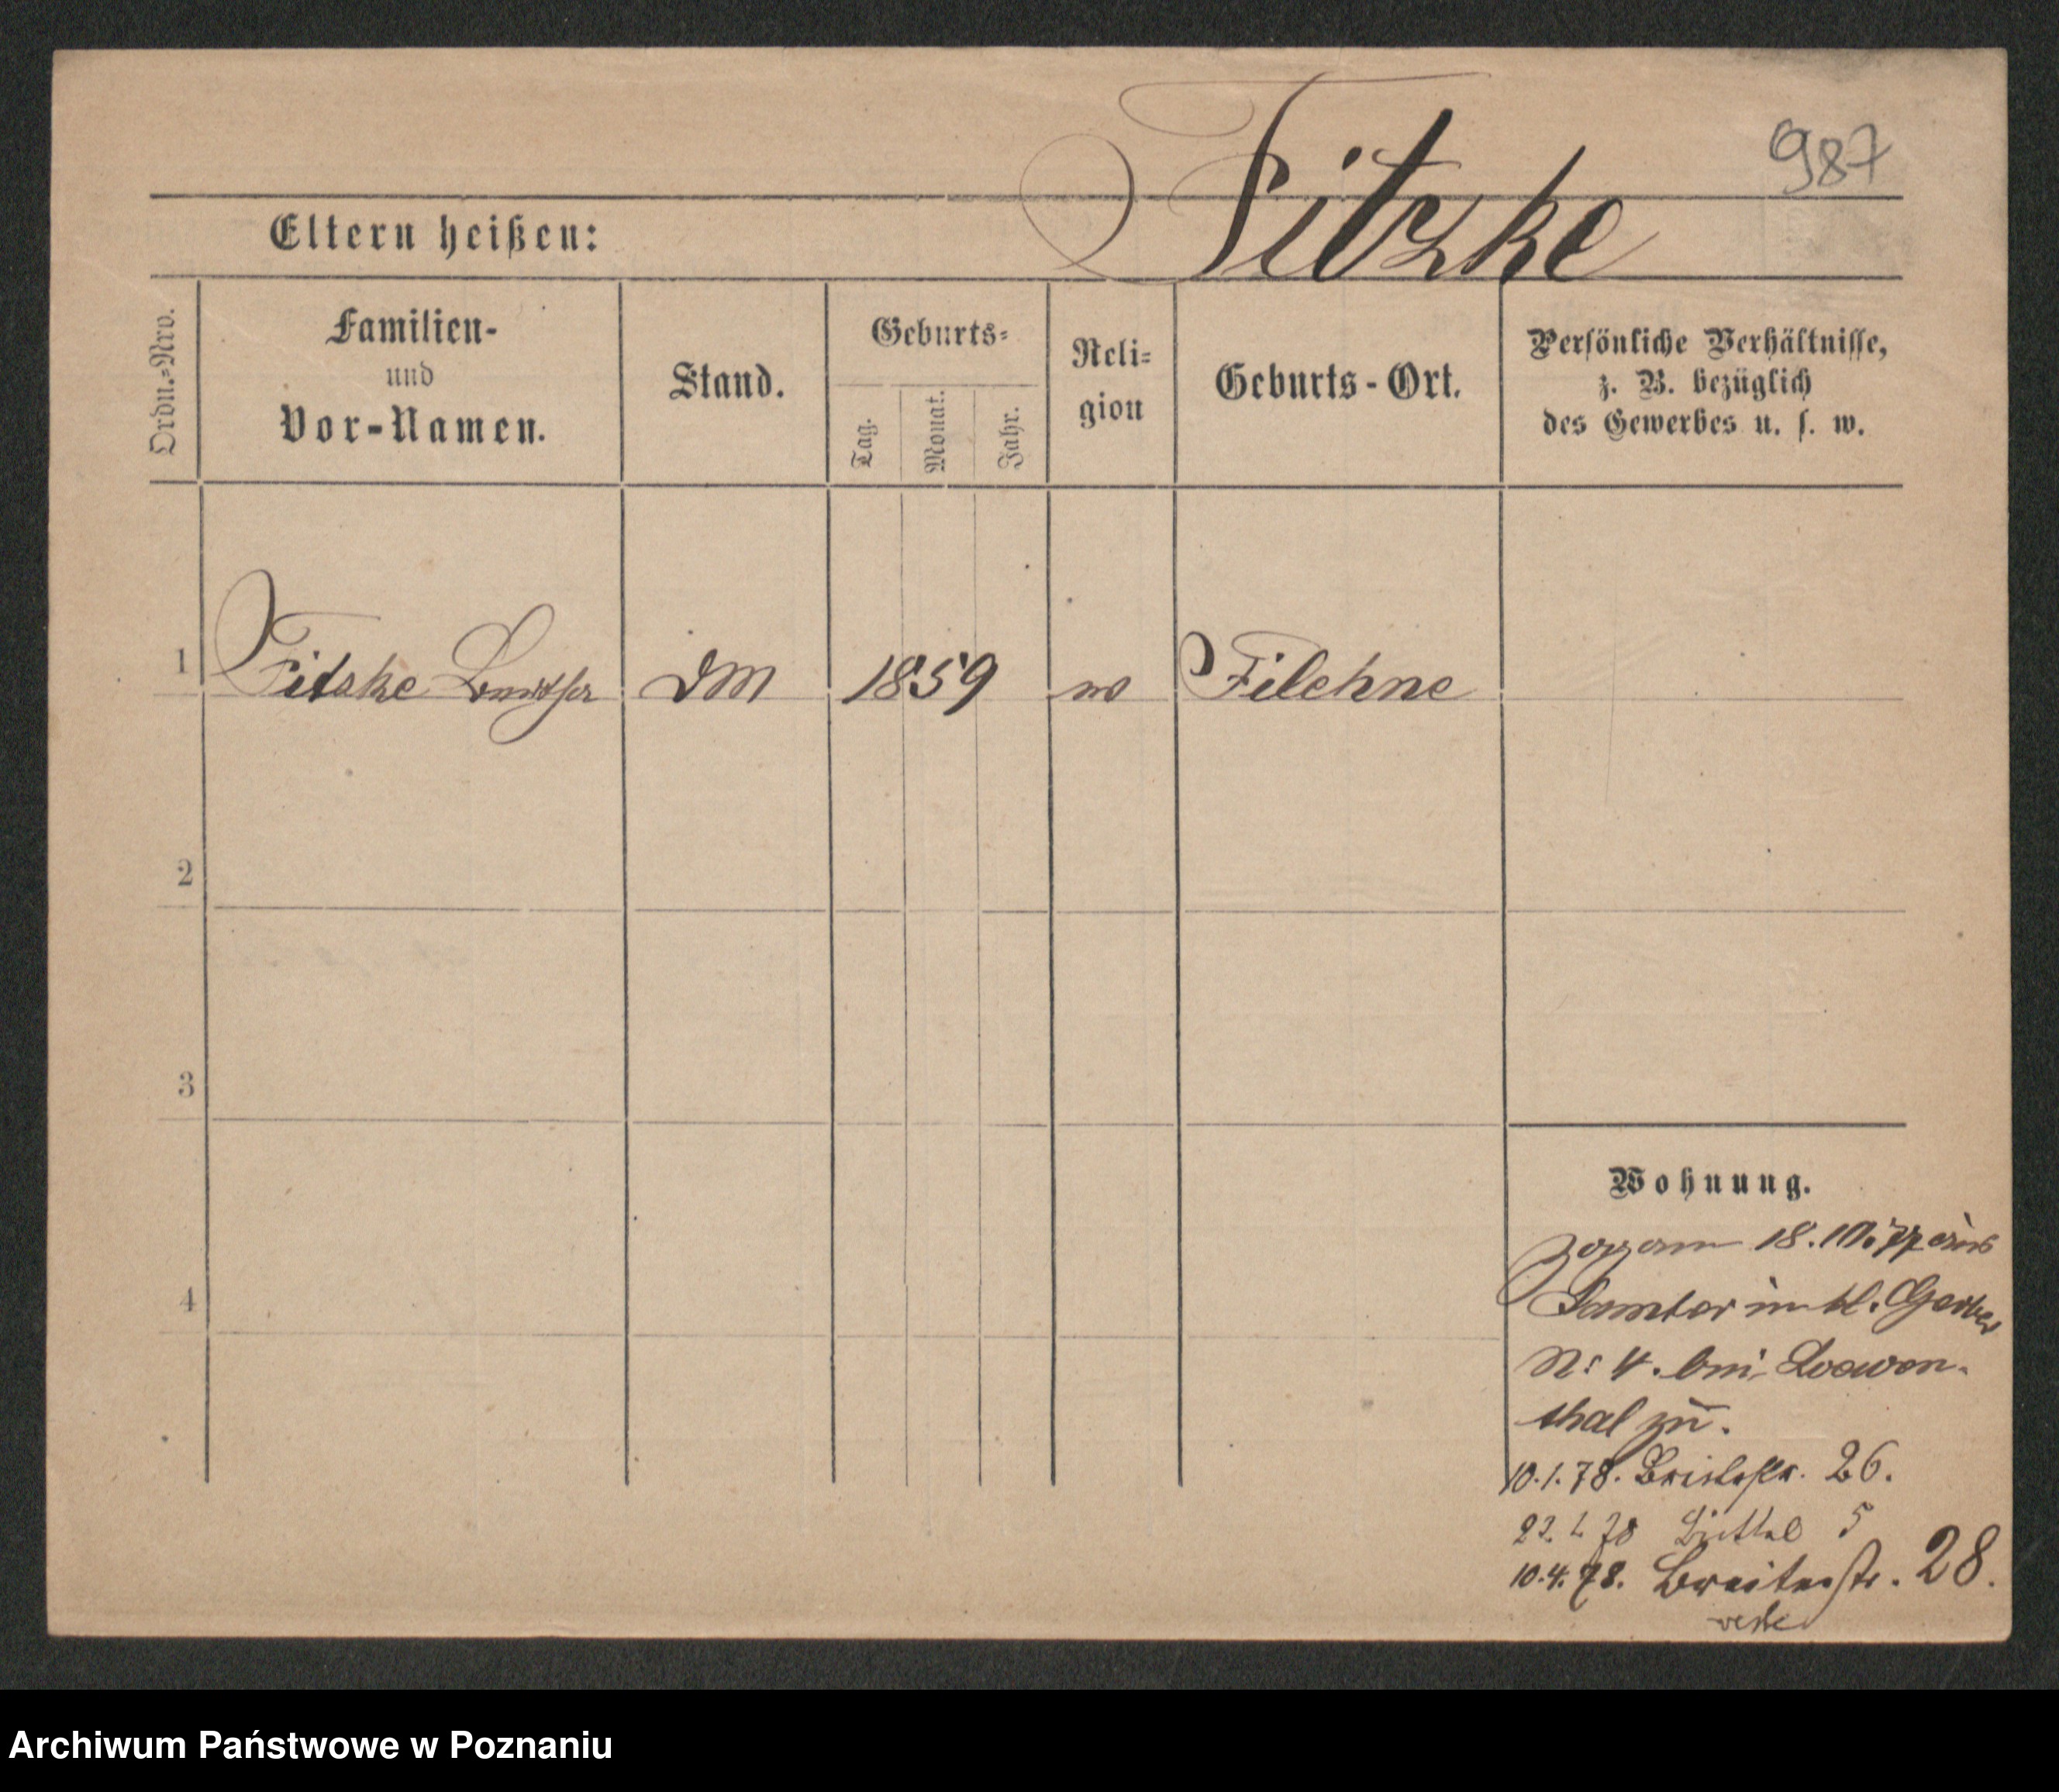 987
Fitzke
Eltern heißen:
Ordn.-Nro.
Familien-
und
Vor-Namen.
Stand.
Geburts-
Tag.
Monat.
Jahr.
Reli-
gion
Geburts-Ort.
Persönliche Verhältnisse,
z. B. bezüglich
des Gewerbes u. s. w.
1 Fitzke DM 1859 Filehne
2
3
4
Wohnung.
zog am 18. 10. 77 aus
Samter in kl. Gerber
No 4. bei Loewen-
thal zu.
10.1.78. 26.
78 5
10.4.78. Breitestr. 28.
Archiwum Państwowe w Poznaniu